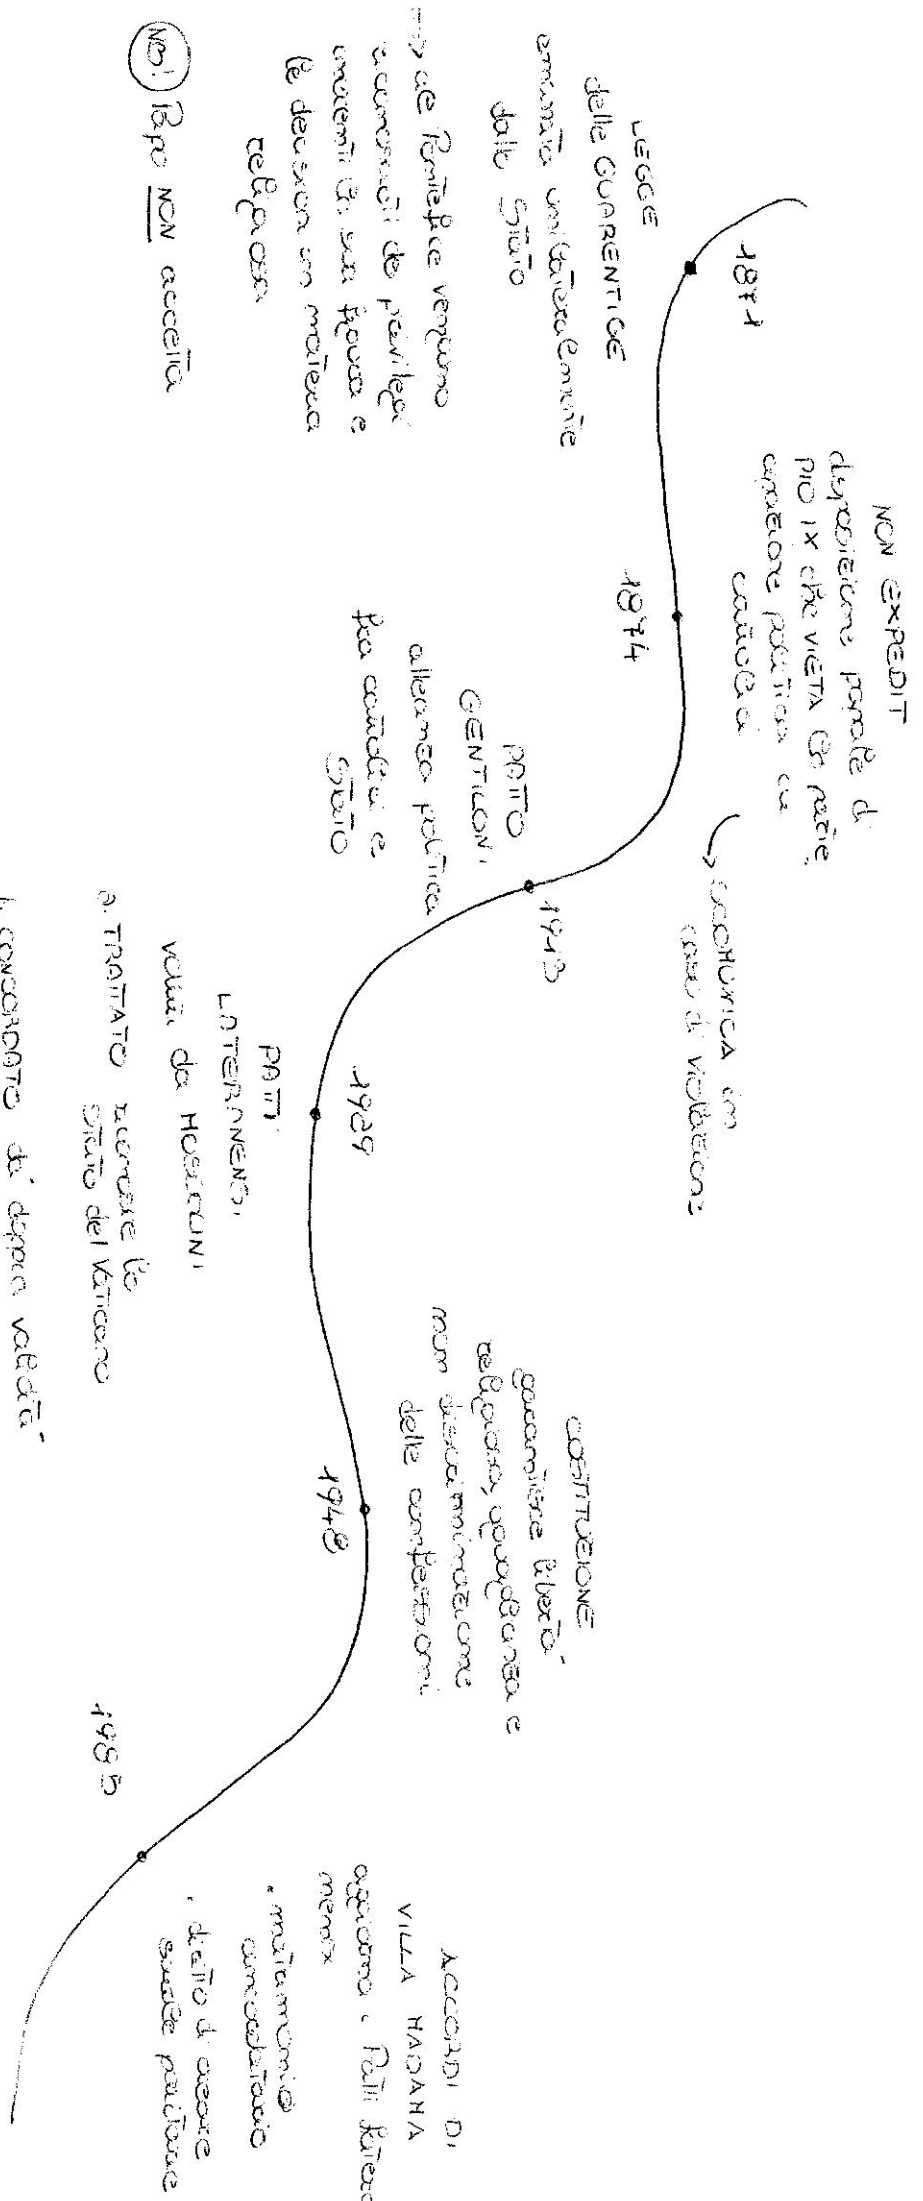 1871
LEGGE
delle GUARENTIGE
emanata unilateralmente
dallo Stato
→ al Pontefice vengono
riconosciuti dei privilegi
inerenti la sua figura e
le decisioni in materia
religiosa
NB! Papa NON accetta
1874
NON EXPEDIT
disposizione papale di
PIO IX che VIETA la parte
cipazione politica ai
cattolici
→ SCOMUNICA in
caso di violazione
1913
PATTO
GENTILONI
alleanza politica
fra cattolici e
Stato
1929
PATTI
LATERANENSI
voluti da MUSSOLINI
a. TRATTATO riconosce lo
Stato del Vaticano
b. CONCORDATO dà doppia validità
1948
COSTITUZIONE
garantisce libertà
religiosa, uguaglianza e
non discriminazione
delle confessioni
1985
ACCORDI DI
VILLA MADAMA
aggiorna i Patti Latera
nensi
• matrimonio
concordatario
• diritto di creare
scuole paritarie